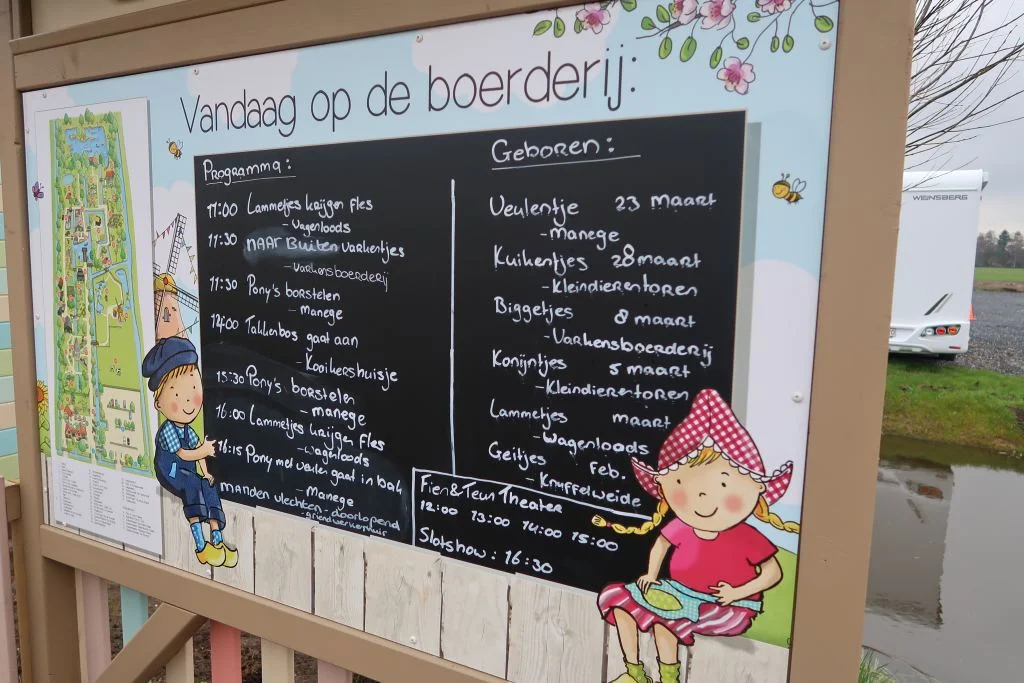 Vandaag op de boerderij:
Programma:
11:00 Lammetjes krijgen fles
- Wagenloods
11:30 NAAR Buiten varkentjes
- Varkensboerderij
11:30 Pony's borstelen
- manege
14:00 Takkenbos gaat aan
- Kooikershuisje
15:30 Pony's borstelen
- manege
16:00 Lammetjes krijgen fles
- Wagenloods
16:15 Pony met veulen gaat in bak
- Manege
manden vlechten - doorlopend
Geboren:
Veulentje 23 maart
- Manege
Kuikentjes 28 maart
- Kleindierentoren
Biggetjes 8 maart
- Varkensboerderij
Konijntjes 5 maart
- Kleindierentoren
Lammetjes maart
- Wagenloods
Geitjes Feb.
- Knuffelweide
Fien & Teun Theater
12:00 13:00 14:00 15:00
Slotshow: 16:30
WEINSBERG